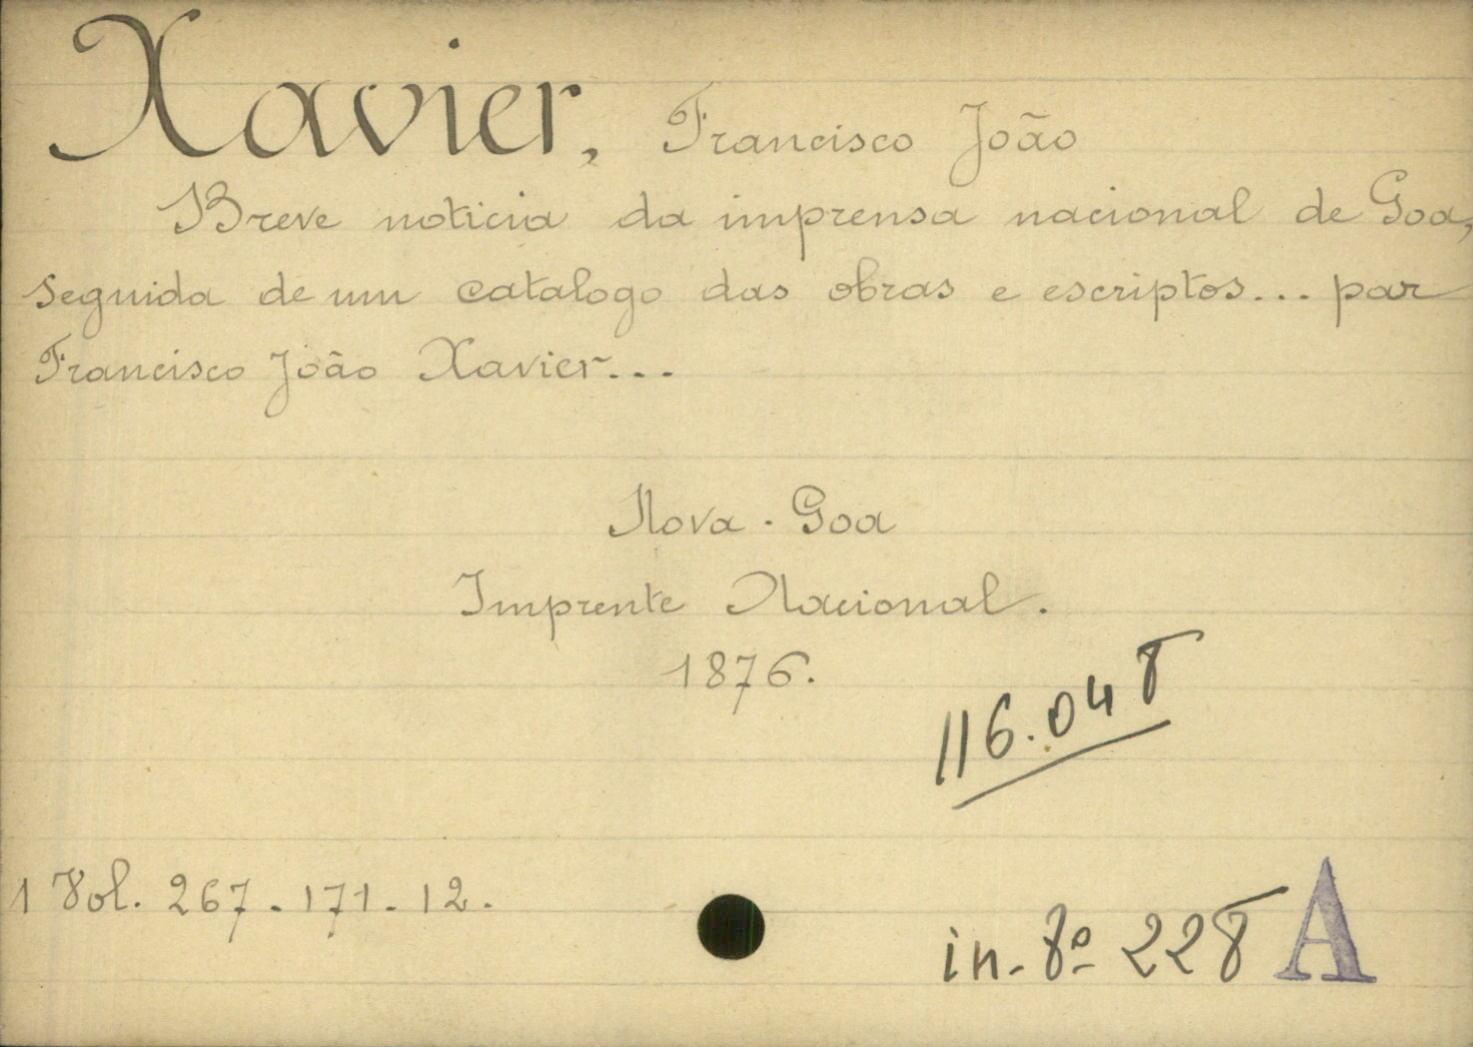 Xavier, Francisco João
Breve noticia da imprensa nacional de Goa,
seguida de um catalogo das obras e escriptos... par
Francisco João Xavier...
Nova-Goa
Imprente Nacional.
1876.
116.048
1 Vol. 267-171-12.
in-8º 228 A